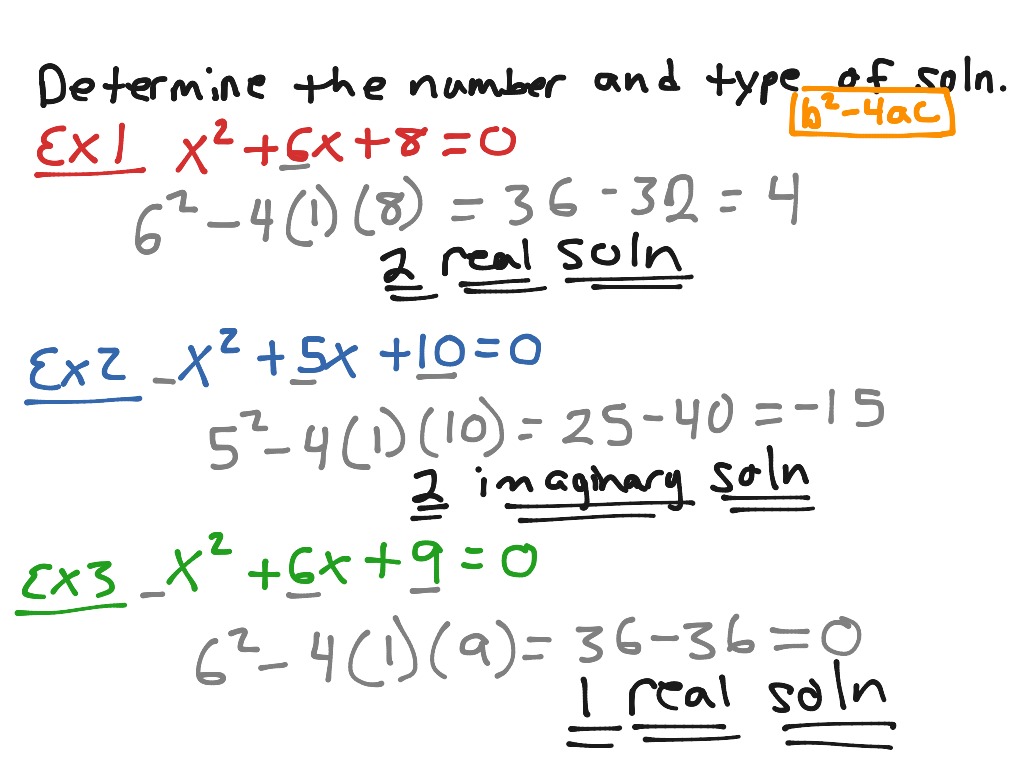 Determine the number and type of soln.
b²-4ac
Ex1 x²+6x+8=0
6²-4(1)(8)=36-32=4
2 real soln
Ex2 x²+5x+10=0
5²-4(1)(10)=25-40=-15
2 imaginary soln
Ex3 x²+6x+9=0
6²-4(1)(9)=36-36=0
1 real soln